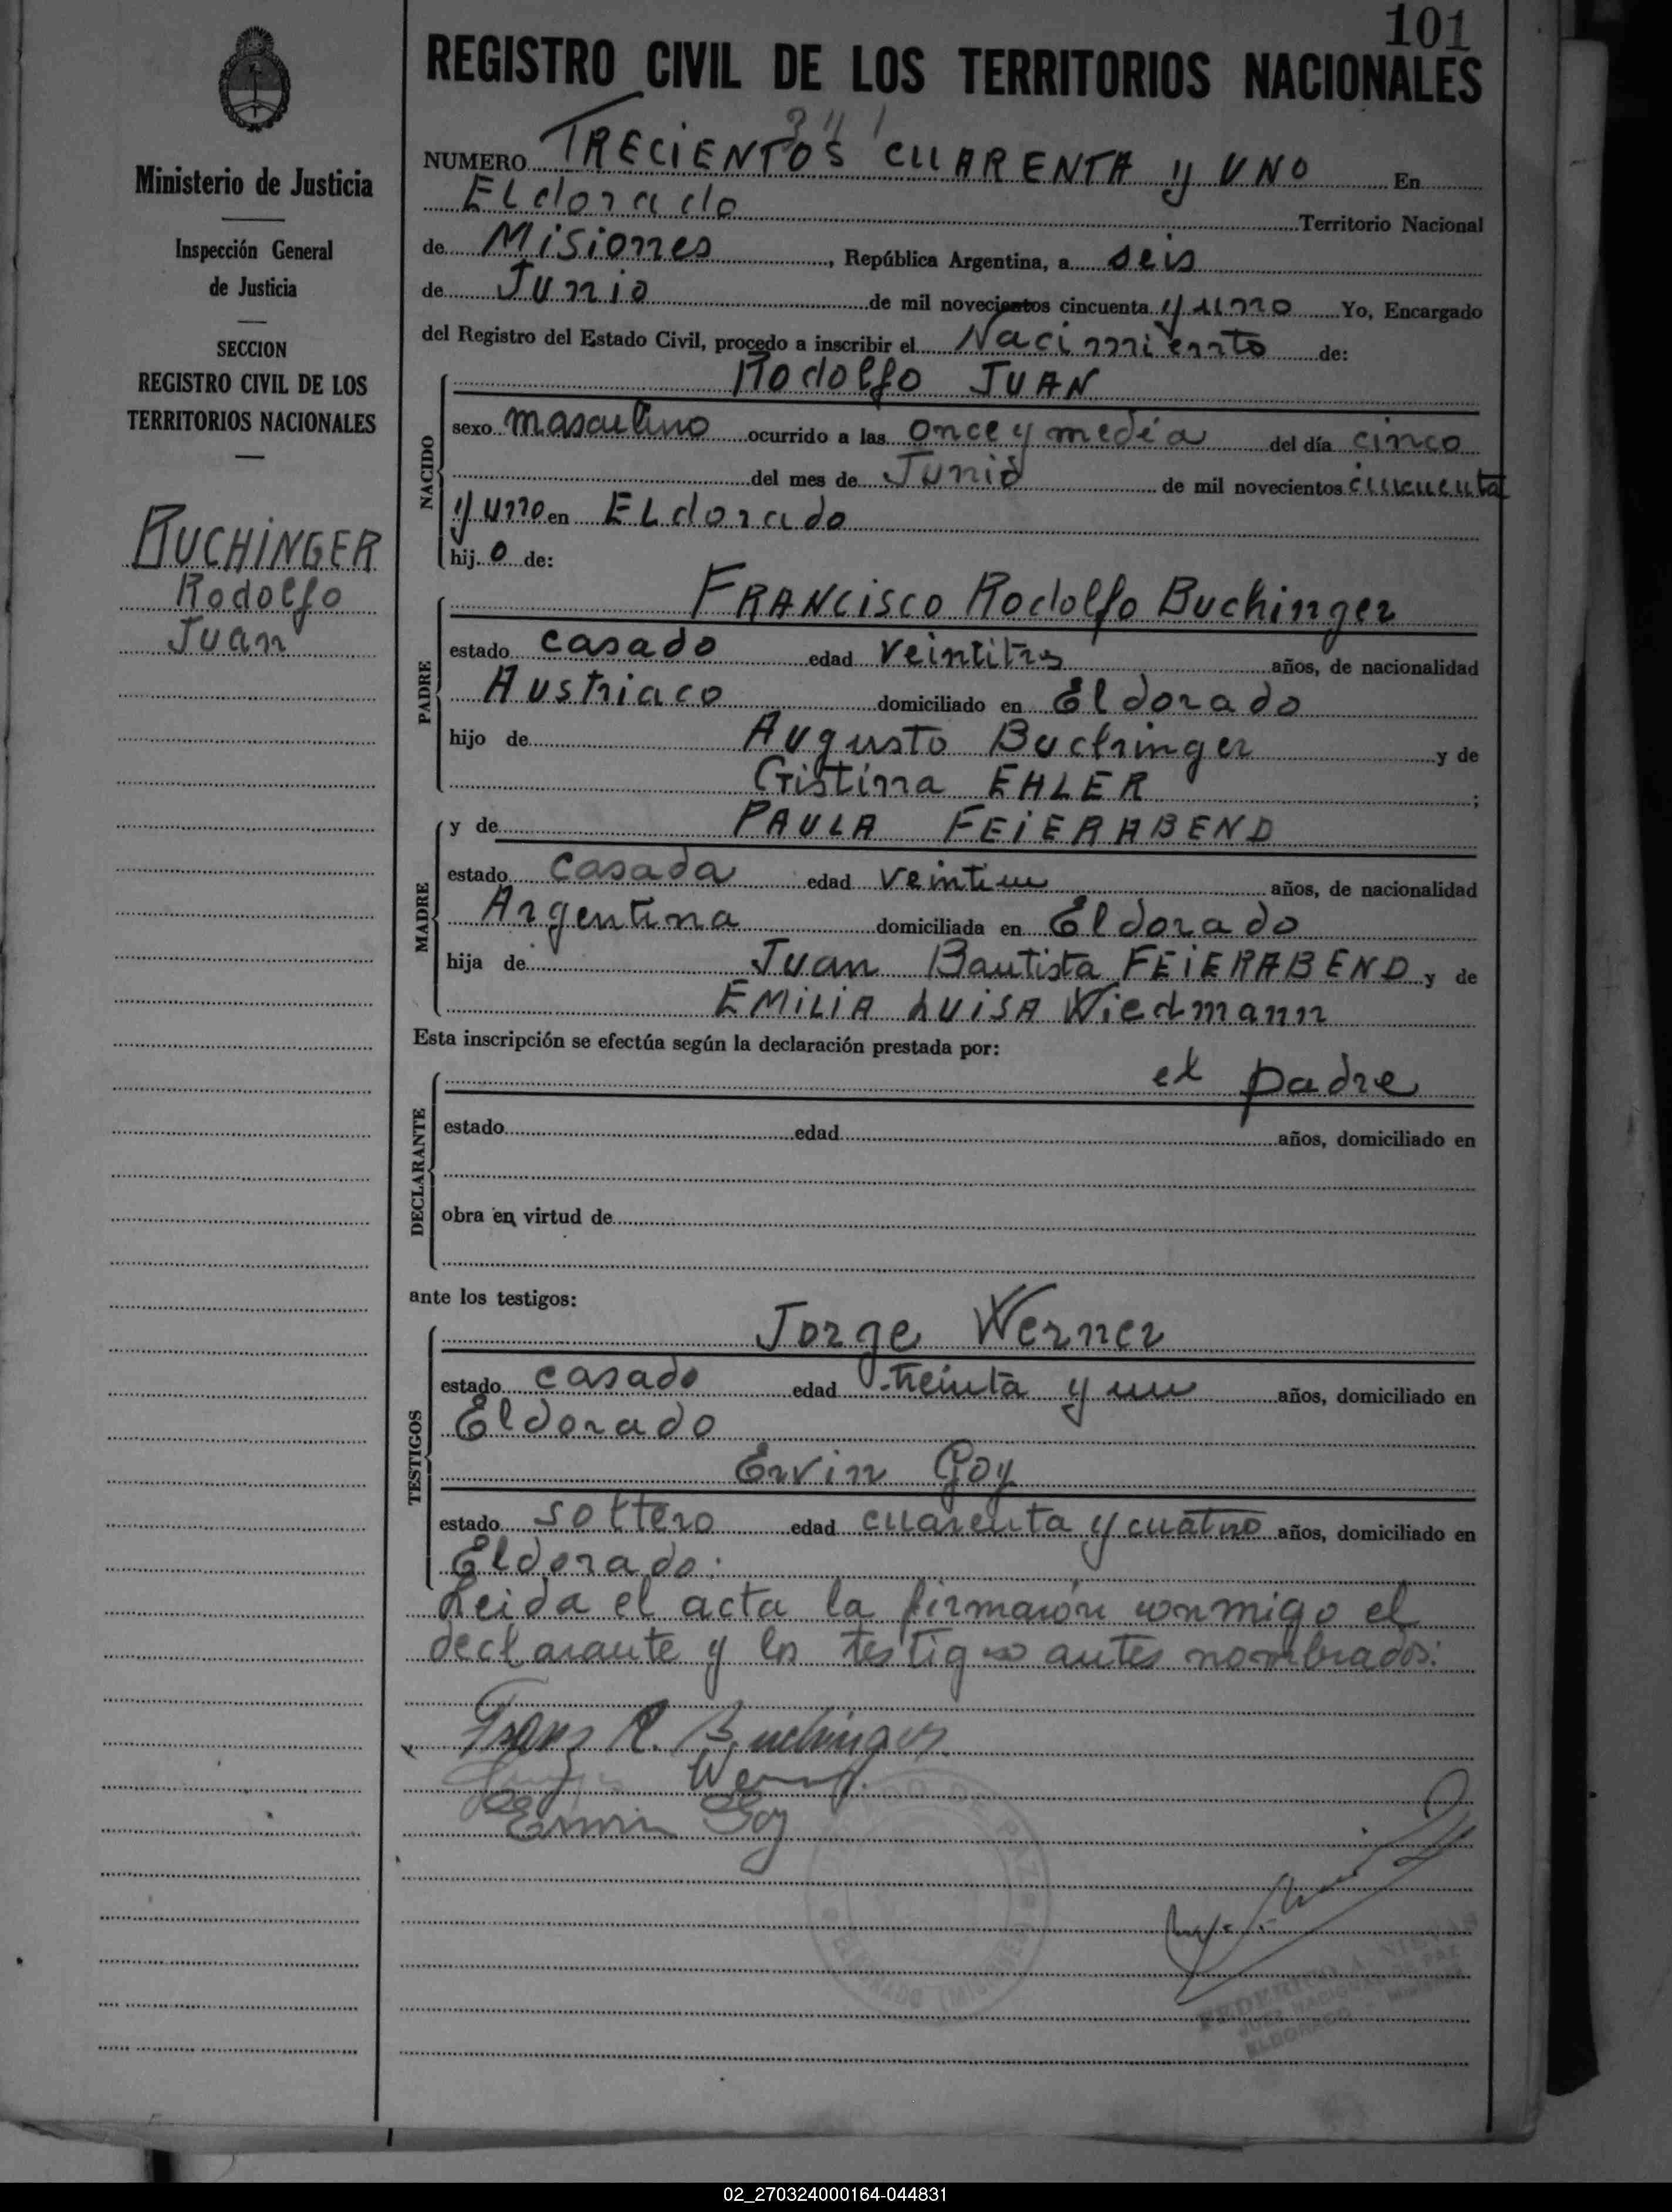 101
REGISTRO CIVIL DE LOS TERRITORIOS NACIONALES
Ministerio de Justicia
Inspección General
de Justicia
SECCION
REGISTRO CIVIL DE LOS
TERRITORIOS NACIONALES
BUCHINGER
Rodolfo
Juan
341
NUMERO TRECIENTOS CUARENTA y UNO En
ELdorado Territorio Nacional
de Misiones, República Argentina, a seis
de Junio de mil novecientos cincuenta y uno Yo, Encargado
del Registro del Estado Civil, procedo a inscribir el Nacimiento de:
NACIDO
Rodolfo JUAN
sexo masculino ocurrido a las once y media del día cinco
del mes de Junio de mil novecientos cincuenta
y uno en ELdorado
hij o de:
PADRE
FRANCISCO Rodolfo Buchinger
estado casado edad veintitrs años, de nacionalidad
Austriaco domiciliado en Eldorado
hijo de Augusto Buchinger y de
Cristina EHLER ;
MADRE
y de PAULA FEIERABEND
estado casada edad veintiun años, de nacionalidad
Argentina domiciliada en Eldorado
hija de Juan Bautista FEIERABEND y de
EMILIA LUISA Wiedmann
Esta inscripción se efectúa según la declaración prestada por:
DECLARANTE
el padre
estado edad años, domiciliado en
obra en virtud de
ante los testigos:
TESTIGOS
Jorge Werner
estado casado edad treinta y un años, domiciliado en
Eldorado
Ervin Goy
estado soltero edad cuarenta y cuatro años, domiciliado en
Eldorado:
Leida el acta la firmaron conmigo el
declarante y los testigos antes nombrados:
Franz R. Buchinger
Erwin Goy
FEDERICO A.
JUEZ NACIONAL DE PAZ
ELDORADO - MISIONES
02_270324000164-044831